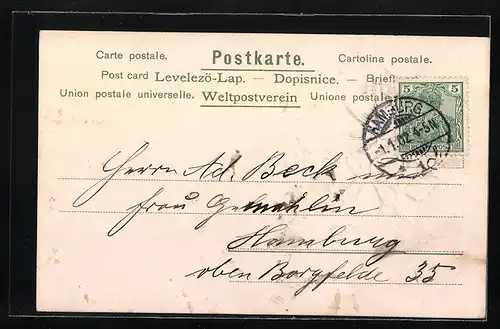 Carte postale. Postkarte. Cartolina postale.
Post card Levelezö-Lap. — Dopisnice. — Briefk
Union postale universelle. Weltpostverein Unione postale
5 5
HAMBURG
1.1.02. 4-5N
Herrn Ad. Beck und
Frau Gemahlin
Hamburg
oben Borgfelde 35